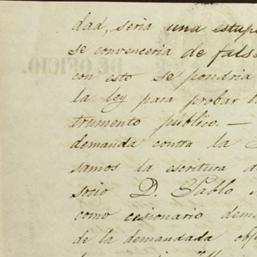 dad, seria una estup
se convenceria de fals
con esto se pondria
la ley para probar l
trumento público. —
demanda contra la
samos la escritura d
socio D. Pablo
como cisionario dem
de la demandada obj
DE OFICIO.